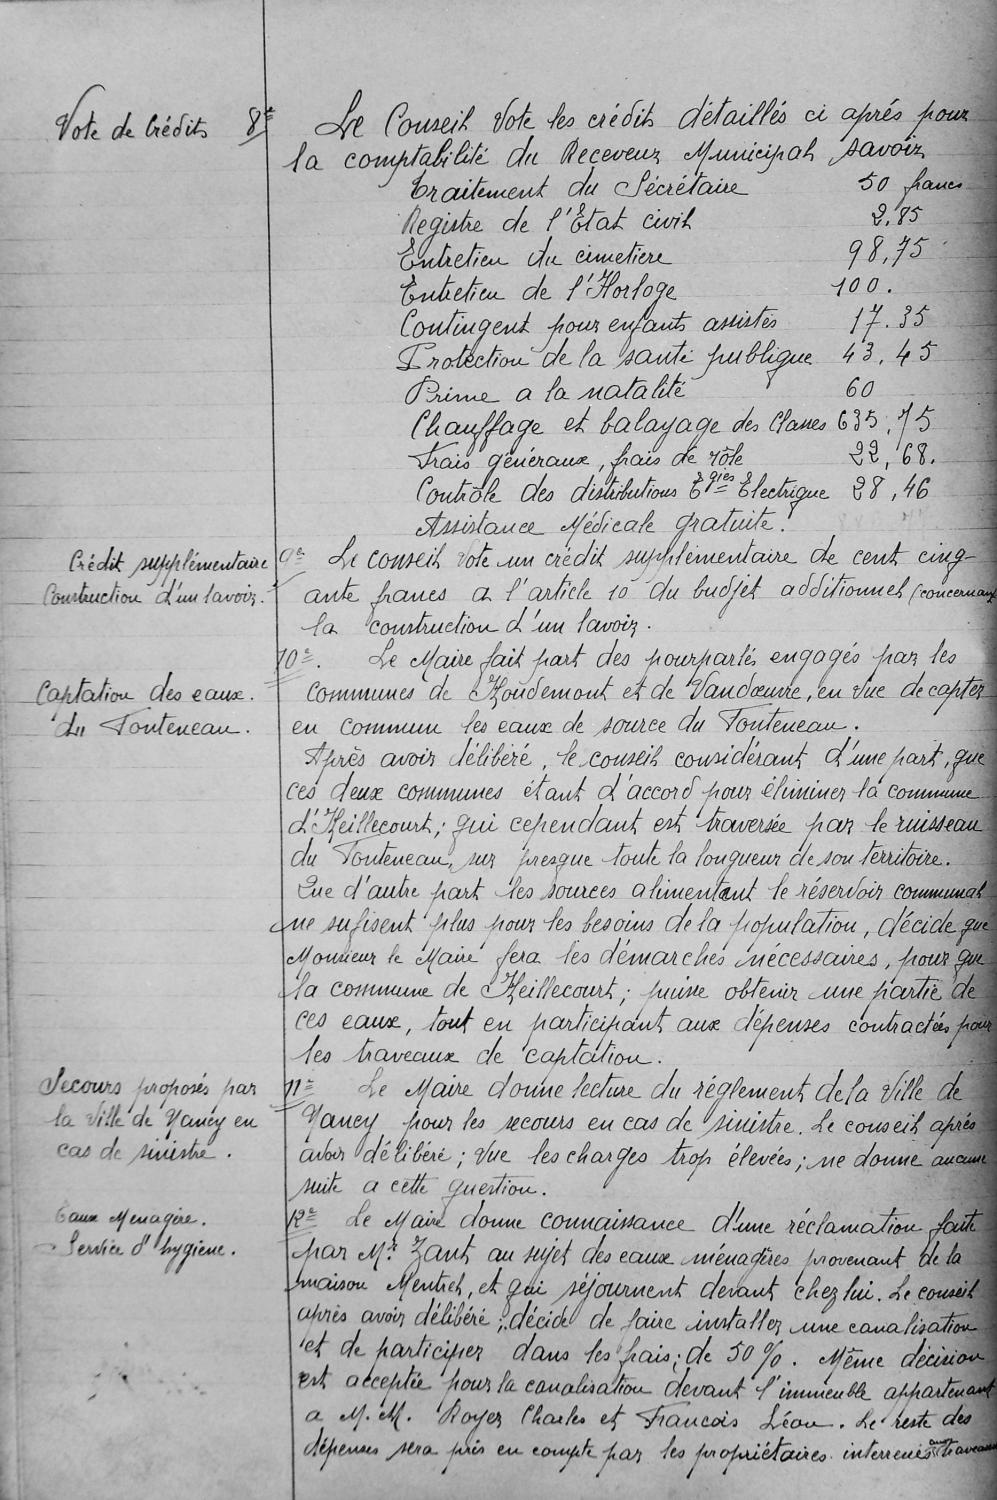 Vote de Crédits 8e Le Conseil Vote les crédits détaillés ci aprés pour
la comptabilité du Receveur Municipal savoir
Traitement du Sécrétaire 50 francs
Registre de l'Etat civil 2,85
Entretien du cimetiere 98,75
Entretien de l'Horloge 100.
Contingent pour enfants assistés 17.35
Protection de la santé publique 43,45
Prime a la natalité 60
Chauffage et balayage des Classes 635,75
Frais généraux, frais de rôle 22,68.
Contrôle des distributions Egies Electrique 28,46
Assistance Médicale gratuite.
Crédit supplémentaire
Construction d'un lavoir.
9e Le conseil vote un crédit supplémentaire de cent cinq-
ante francs a l'article 10 du budjet additionnel (concernant
la construction d'un lavoir.
Captation des eaux.
du Fonteneau.
10e. Le Maire fait part des pourparlés engagés par les
communes de Houdemont et de Vandœuvre, en vue de capter
en commun les eaux de source du Fonteneau.
Après avoir délibéré, le conseil considérant d'une part, que
ces deux communes étant d'accord pour éliminer la commune
d'Heillecourt; qui cependant est traversée par le ruisseau
du Fonteneau, sur presque toute la longueur de son territoire.
Que d'autre part les sources alimentant le réservoir communal
ne sufisent plus pour les besoins de la population, décide que
Monsieur le Maire fera les démarches nécessaires, pour que
la commune de Heillecourt; puisse obtenir une partie de
ces eaux, tout en participant aux dépenses contractées pour
les traveaux de captation.
Secours proposés par
la ville de Nancy en
cas de sinistre.
11e Le Maire donne lecture du réglement de la Ville de
Nancy pour les secours en cas de sinistre. Le conseil aprés
avoir délibéré; vue les charges trop élevées; ne donne aucune
suite a cette question.
Eaux Menagère.
Service d'hygiene.
12e Le Maire donne connaissance d'une réclamation faite
par Mr Zant au sujet des eaux ménagères provenant de la
maison Mentrel, et qui séjournent devant chez lui. Le conseil
après avoir délibéré; décide de faire installer une canalisation
et de participer dans les frais; de 50 %. Même décision
est acceptée pour la canalisation devant l'immeuble appartenant
a M.M. Royer Charles et Francois Léon. Le reste des
dépenses sera pris en compte par les propriétaires. aux traveaux